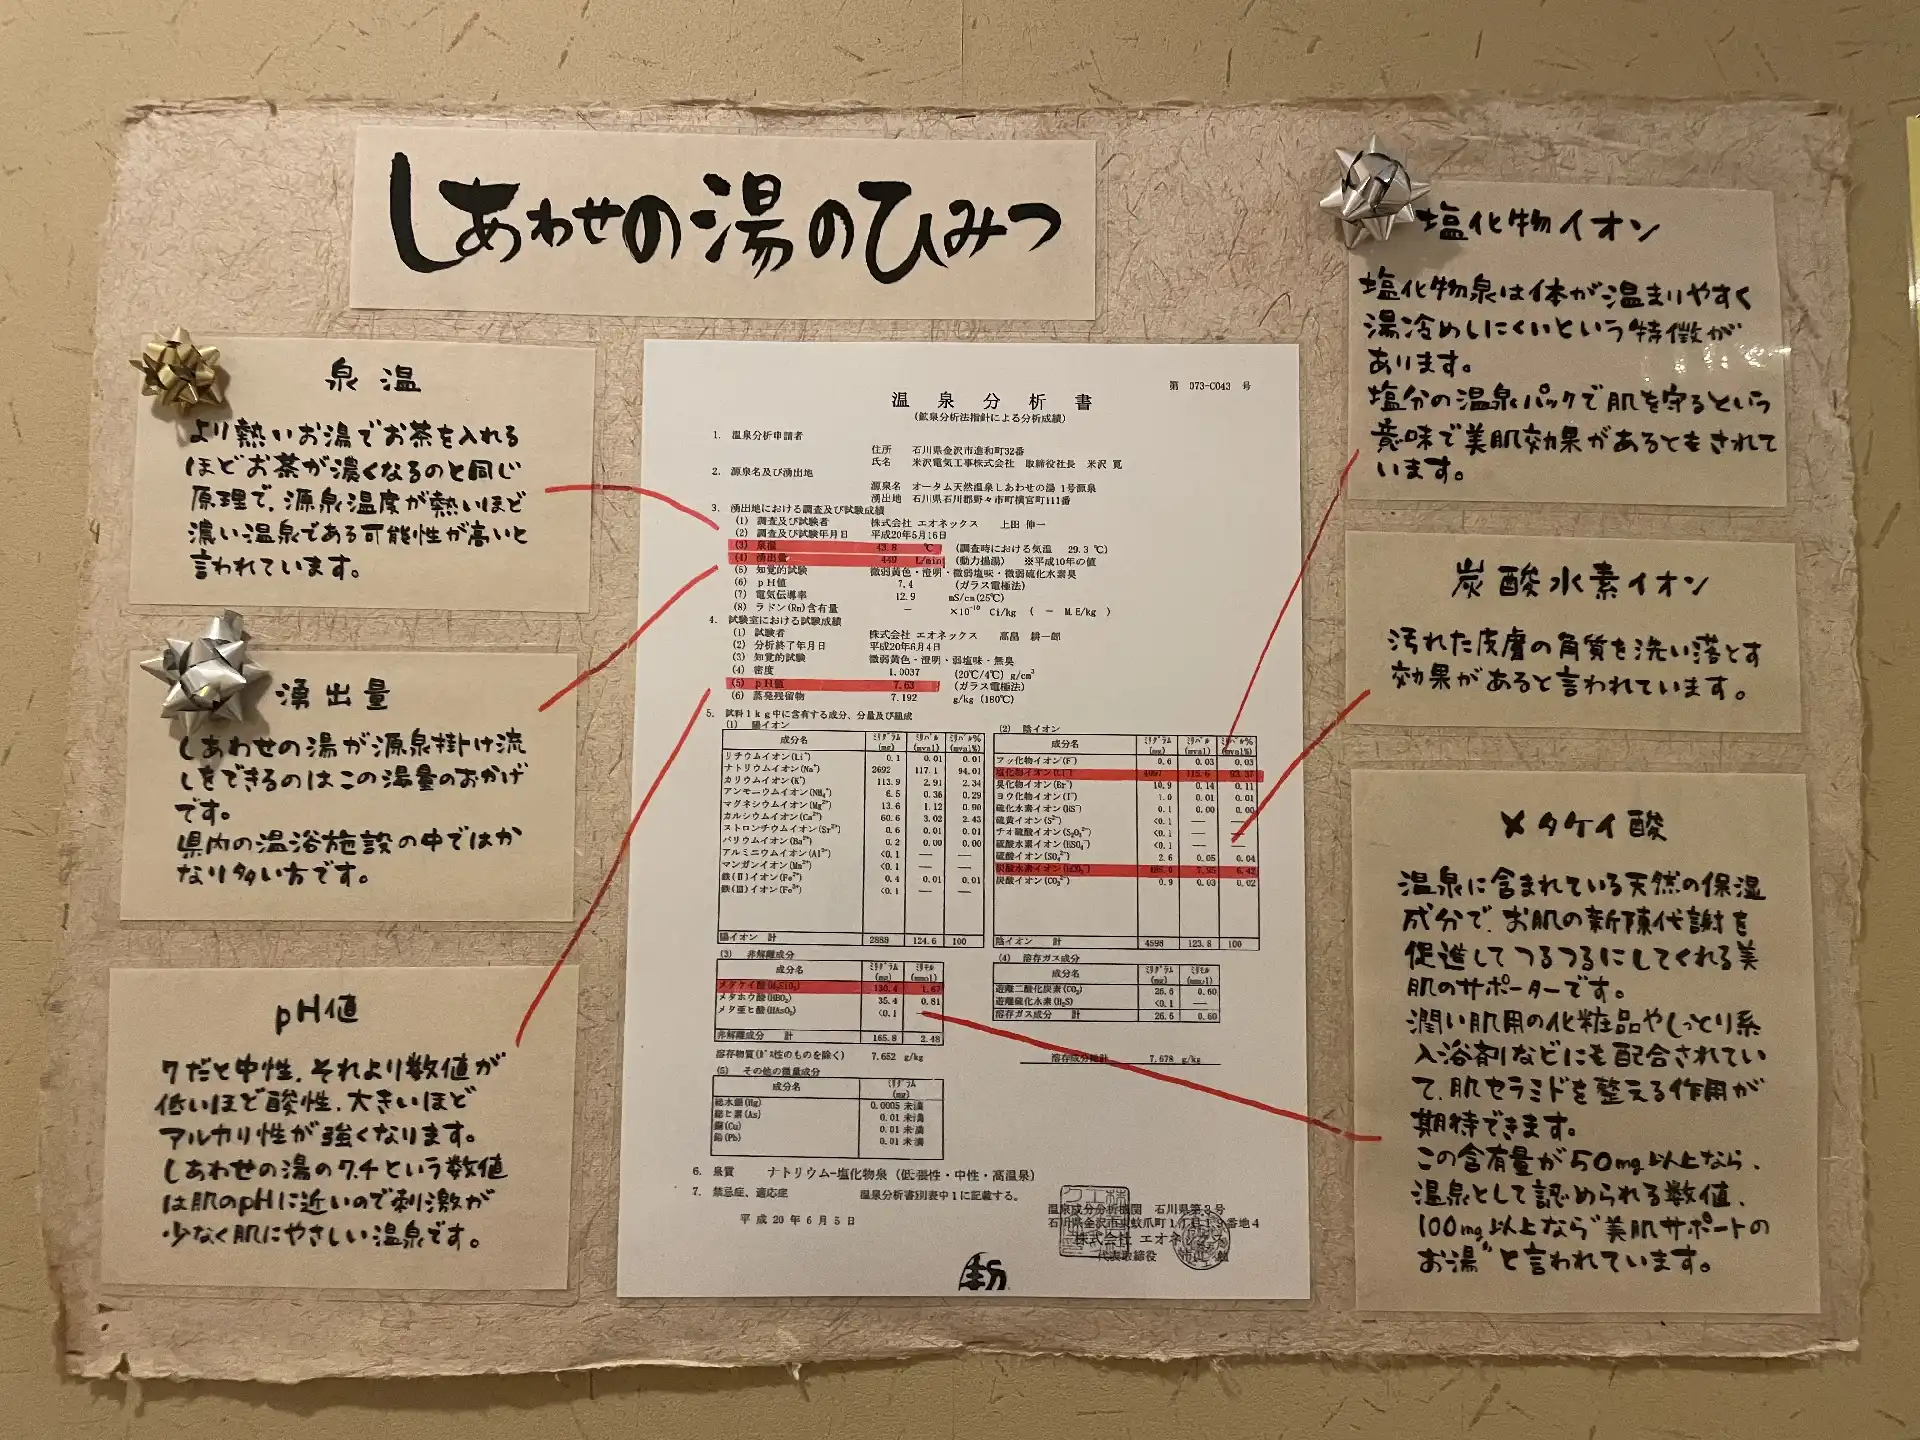 しあわせの湯のひみつ
泉温
より熱いお湯でお茶を入れる
ほどお茶が濃くなるのと同じ
原理で、源泉温度が熱いほど
濃い温泉である可能性が高いと
言われています。
湧出量
しあわせの湯が源泉掛け流
しをできるのはこの湯量のおかげ
です。
県内の温浴施設の中ではか
なり多い方です。
pH値
7だと中性、それより数値が
低いほど酸性、大きいほど
アルカリ性が強くなります。
しあわせの湯の7.4という数値
は肌のpHに近いので刺激が
少なく肌にやさしい温泉です。
第 073-C043 号
温泉分析書
(鉱泉分析法指針による分析成績)
1. 温泉分析申請者
住所 石川県金沢市進和町32番
氏名 米沢電気工事株式会社 取締役社長 米沢 寛
2. 源泉名及び湧出地
源泉名 オータム天然温泉しあわせの湯 1号源泉
湧出地 石川県石川郡野々市町横宮町111番
3. 湧出地における調査及び試験成績
(1) 調査及び試験者 株式会社 エオネックス 上田 伸一
(2) 調査及び試験年月日 平成20年5月16日
(3) 泉温 43.8 ℃ (調査時における気温 29.3 ℃)
(4) 湧出量 449 L/min (動力揚湯) ※平成10年の値
(5) 知覚的試験 微弱黄色・澄明・微弱塩味・微弱硫化水素臭
(6) pH値 7.4 (ガラス電極法)
(7) 電気伝導率 12.9 mS/cm(25℃)
(8) ラドン(Rn)含有量 — ×10⁻¹⁰ Ci/kg ( — M.E/kg )
4. 試験室における試験成績
(1) 試験者 株式会社 エオネックス 高畠 耕一郎
(2) 分析終了年月日 平成20年6月4日
(3) 知覚的試験 微弱黄色・澄明・弱塩味・無臭
(4) 密度 1.0037 (20℃/4℃) g/cm³
(5) pH値 7.63 (ガラス電極法)
(6) 蒸発残留物 7.192 g/kg (180℃)
5. 試料1kg中に含有する成分、分量及び組成
(1) 陽イオン
成分名 ミリグラム(mg) ミリバル(mval) ミリバル%(mval%)
リチウムイオン(Li⁺) 0.1 0.01 0.01
ナトリウムイオン(Na⁺) 2692 117.1 94.01
カリウムイオン(K⁺) 113.9 2.91 2.34
アンモニウムイオン(NH₄⁺) 6.5 0.36 0.29
マグネシウムイオン(Mg²⁺) 13.6 1.12 0.90
カルシウムイオン(Ca²⁺) 60.6 3.02 2.43
ストロンチウムイオン(Sr²⁺) 0.6 0.01 0.01
バリウムイオン(Ba²⁺) 0.2 0.00 0.00
アルミニウムイオン(Al³⁺) <0.1 — —
マンガンイオン(Mn²⁺) <0.1 — —
鉄(Ⅱ)イオン(Fe²⁺) 0.4 0.01 0.01
鉄(Ⅲ)イオン(Fe³⁺) <0.1 — —
陽イオン 計 2888 124.6 100
(2) 陰イオン
成分名 ミリグラム(mg) ミリバル(mval) ミリバル%(mval%)
フッ化物イオン(F⁻) 0.6 0.03 0.03
塩化物イオン(Cl⁻) 4097 115.6 93.37
臭化物イオン(Br⁻) 10.9 0.14 0.11
ヨウ化物イオン(I⁻) 1.0 0.01 0.01
硫化水素イオン(HS⁻) 0.1 0.00 0.00
硫黄イオン(S²⁻) <0.1 — —
チオ硫酸イオン(S₂O₃²⁻) <0.1 — —
硫酸水素イオン(HSO₄⁻) <0.1 — —
硫酸イオン(SO₄²⁻) 2.6 0.05 0.04
炭酸水素イオン(HCO₃⁻) 7.95 6.42
炭酸イオン(CO₃²⁻) 0.9 0.03 0.02
陰イオン 計 4598 123.8 100
(3) 非解離成分
成分名 ミリグラム(mg) ミリモル(mmol)
メタケイ酸(H₂SiO₃) 130.4 1.67
メタホウ酸(HBO₂) 35.4 0.81
メタ亜ヒ酸(HAsO₂) <0.1 —
非解離成分 計 165.8 2.48
(4) 溶存ガス成分
成分名 ミリグラム(mg) ミリモル(mmol)
遊離二酸化炭素(CO₂) 26.6 0.60
遊離硫化水素(H₂S) <0.1 —
溶存ガス成分 計 26.6 0.60
溶存物質(ガス性のものを除く) 7.652 g/kg
溶存成分総計 7.678 g/kg
(5) その他の微量成分
成分名 ミリグラム(mg)
総水銀(Hg) 0.0005 未満
総ヒ素(As) 0.01 未満
銅(Cu) 0.01 未満
鉛(Pb) 0.01 未満
6. 泉質 ナトリウム-塩化物泉(低張性・中性・高温泉)
7. 禁忌症、適応症 温泉分析書別表中1に記載する。
平成20年6月5日
温泉成分分析機関 石川県第3号
石川県金沢市東蚊爪町1丁目19番地4
株式会社 エオネックス
代表取締役
塩化物イオン
塩化物泉は体が温まりやすく
湯冷めしにくいという特徴が
あります。
塩分の温泉パックで肌を守るという
意味で美肌効果があるともされて
います。
炭酸水素イオン
汚れた皮膚の角質を洗い落とす
効果があると言われています。
メタケイ酸
温泉に含まれている天然の保湿
成分で、お肌の新陳代謝を
促進してつるつるにしてくれる美
肌のサポーターです。
潤い肌用の化粧品やしっとり系
入浴剤などにも配合されてい
て、肌セラミドを整える作用が
期待できます。
この含有量が50mg以上なら、
温泉として認められる数値、
100mg以上なら"美肌サポートの
お湯"と言われています。